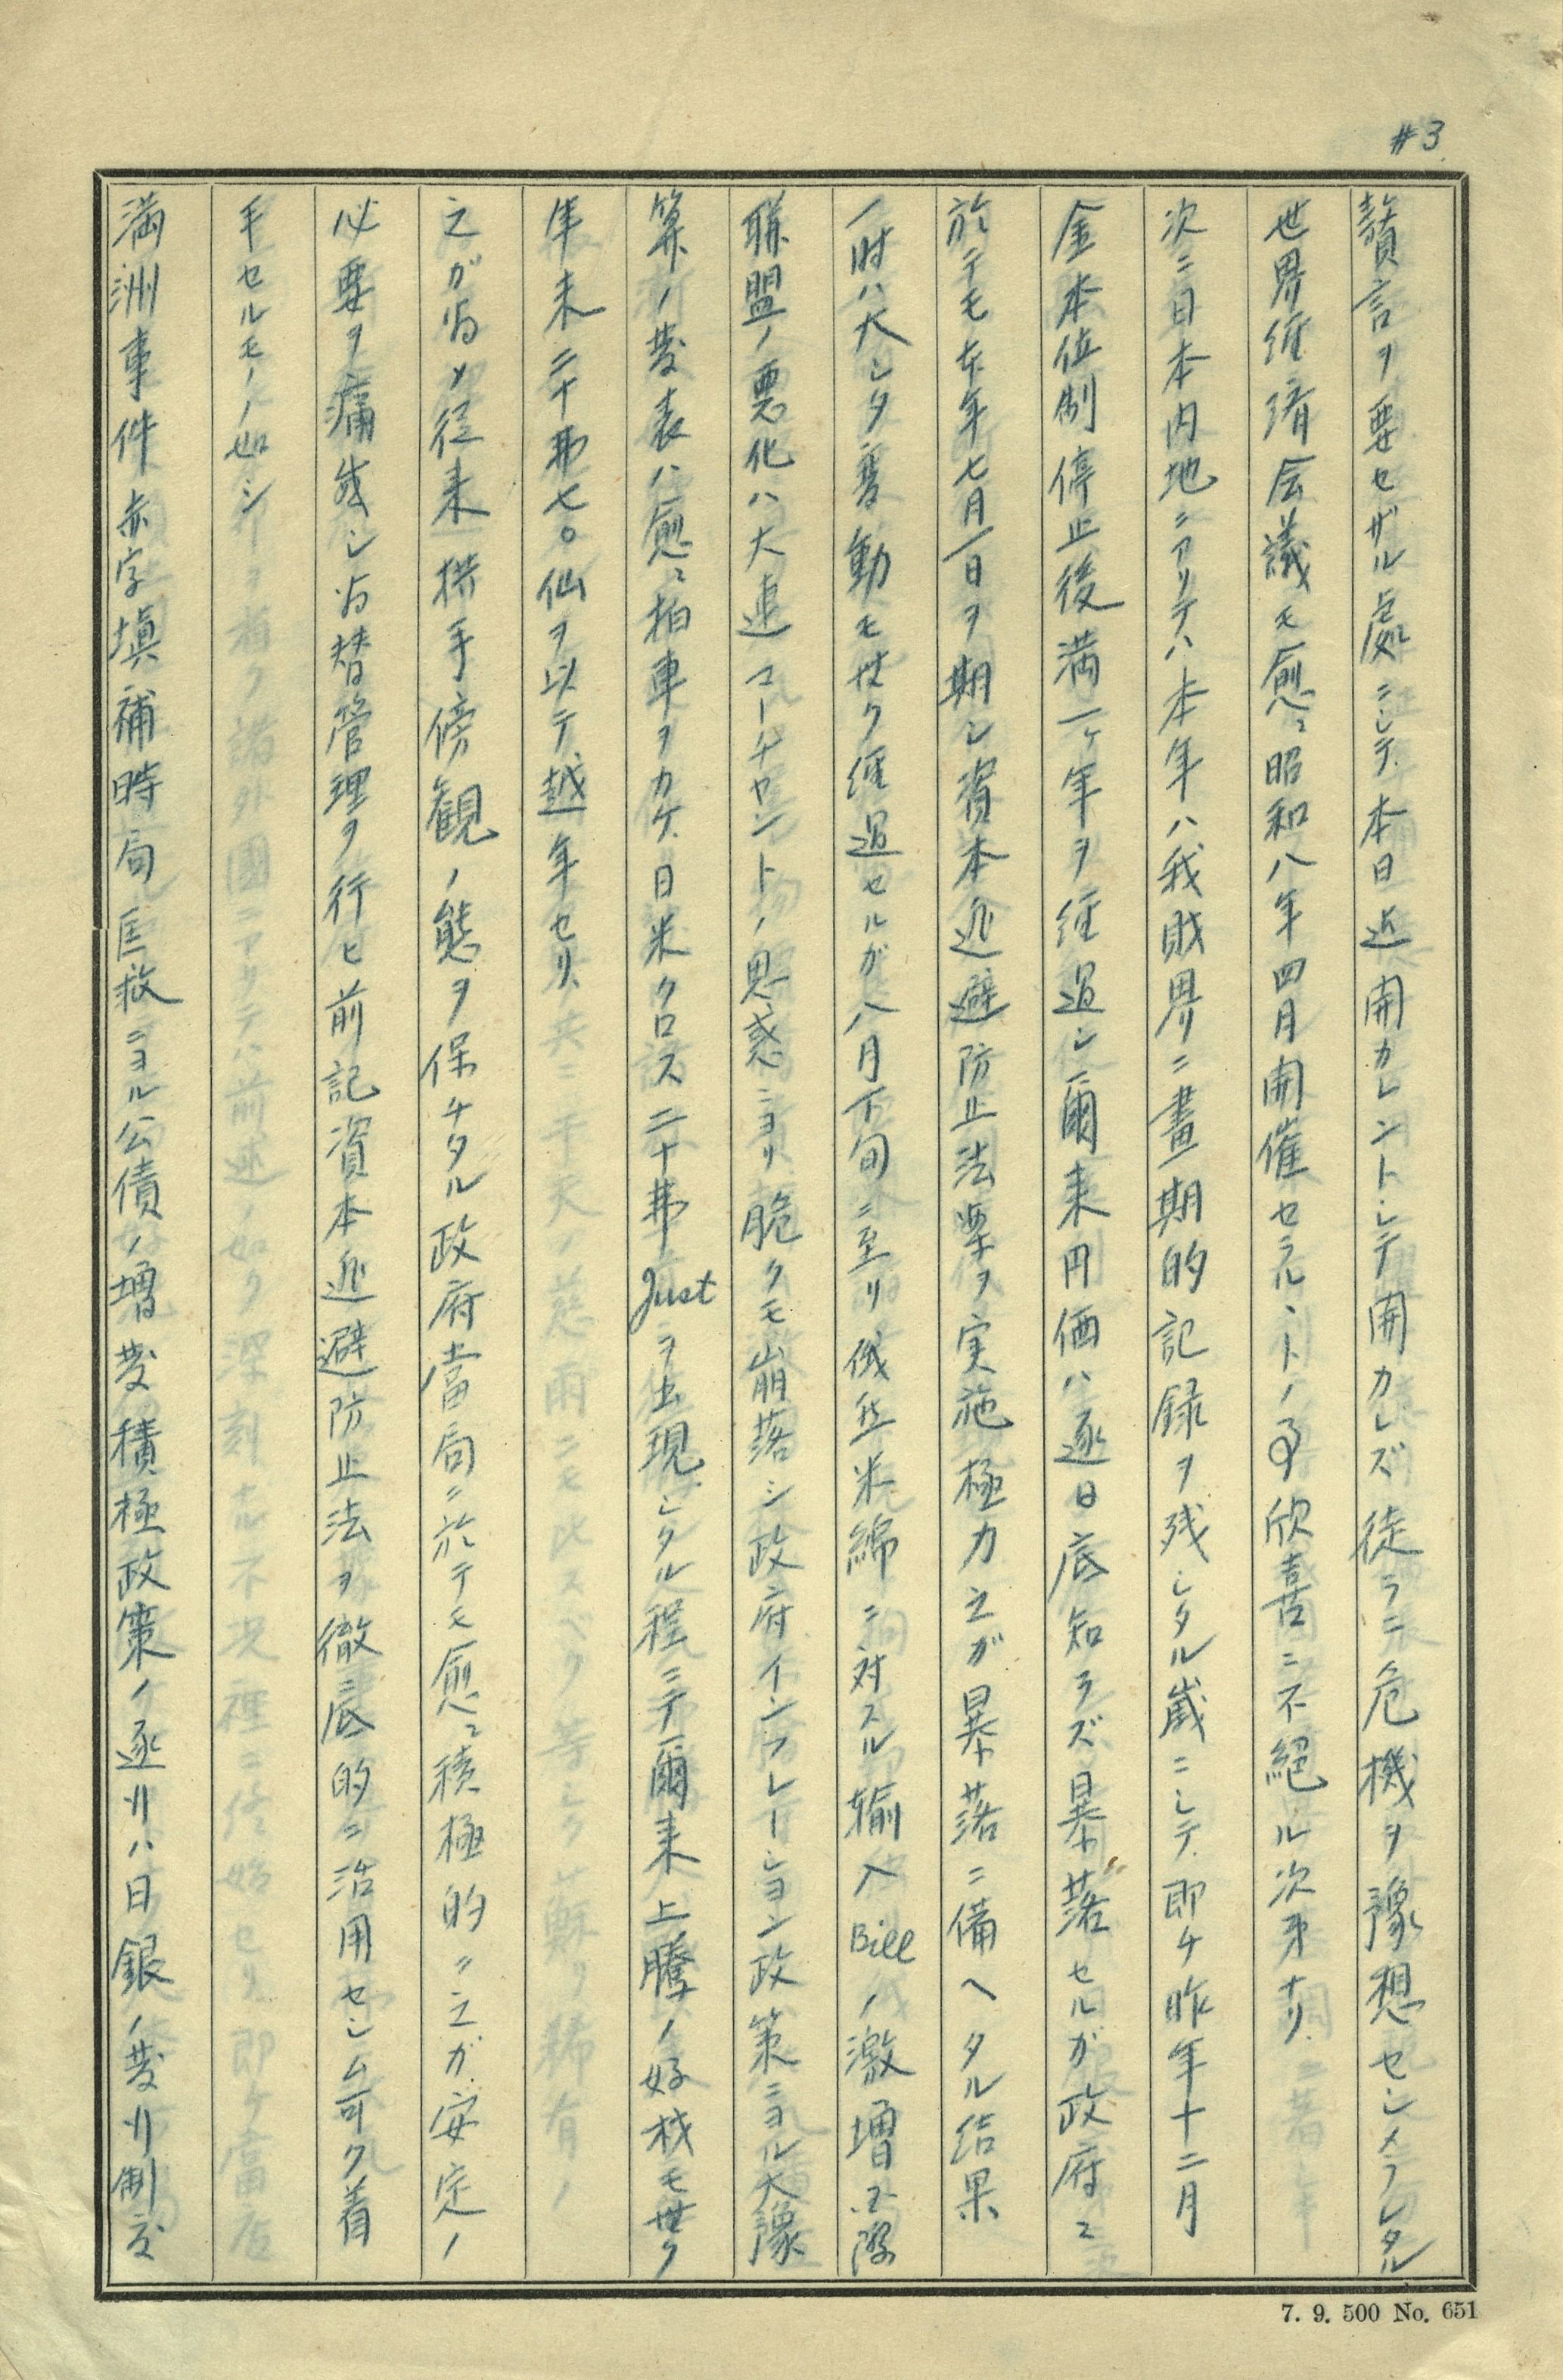 #3
贅言ヲ要セザル處ニシテ、本日近開カレントシテ開カレズ徒ラニ危機ヲ豫想センメラレタル
世界経済会議モ愈々昭和八年四月開催セラルヽトノ事欣喜ニ不絶ル次第ナリ、
次ニ日本内地ニアリテハ本年ハ我財界ニ畫期的記録ヲ残シタル歳ニシテ、即チ昨年十二月
金本位制停止後満一ヶ年ヲ経過シ爾来円価ハ逐日底知ラズ暴落セルガ政府ニ
於テモ本年七月一日ヲ期シ資本逃避防止法案ヲ実施極力之ガ暴落ニ備ヘタル結果
一時ハ大シタ変動モ無ク経過セルガ八月下旬ニ至リ俄然米綿ニ対スル輸入Billノ激増 国際
聯盟ノ悪化ハ大連マーチャントノ思惑ニヨリ脆クモ崩落シ政府インフレーション政策ニヨル大豫
算ノ発表ハ愈々拍車ヲカケ、日米クロス二十弗Justヲ出現シタル程ニテ爾来上騰ノ好材モ無ク
年末二十弗七〇仙ヲ以テ越年セリ、
之ガ為メ従来拱手傍観ノ態ヲ保チタル政府當局ニ於テモ愈々積極的ニ之ガ安定ノ
必要ヲ痛感シ為替管理ヲ行ヒ前記資本逃避防止法ヲ徹底的ニ活用セシム可ク着
手セルモノノ如シ
満洲事件赤字填補時局匡救ニヨル公債ノ増発積極政策ノ逐行ハ日銀ノ発行制度
7. 9. 500 No. 651